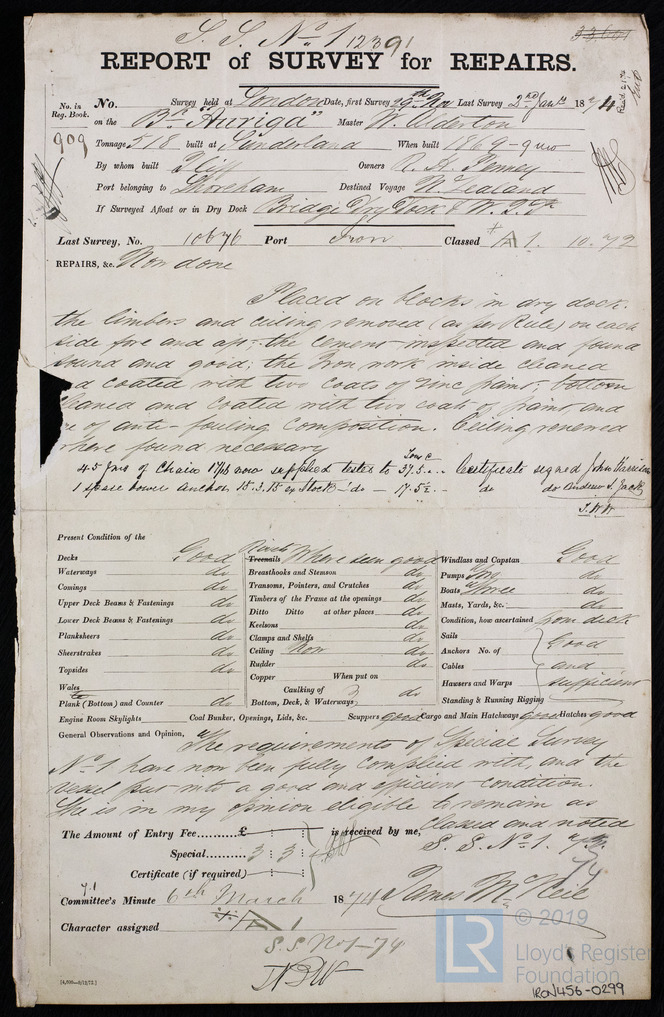 S. S. No 1 12391
33,601
REPORT of SURVEY for REPAIRS.
No. in Reg. Book. No. Survey held at London Date, first Survey 29th Nov Last Survey 2nd Jany 1874
on the Bk "Auriga" Master W. Alderton
909 Tonnage 518 built at Sunderland When built 1869-9 mo
By whom built Iliff Owners R. H. Penney
Port belonging to Shoreham Destined Voyage N. Zealand
If Surveyed Afloat or in Dry Dock Bridge Dry Dock & W. I. Dk
Last Survey, No. 10676 Port Iron Classed A 1. 10.73
REPAIRS, &c. Now done
Placed on blocks in dry dock.
the limbers and ceiling removed (as per Rule) on each
side fore and aft: the cement inspected and found
sound and good, the Iron work inside cleaned
d coated with two coats of zinc paint; bottom
leaned and coated with two coats of paint, and
e of anti-fouling composition. Ceiling renewed
where found necessary
Tons C
45 fms of Chain 17/16 now supplied tested to 37.5 ... Certificate signed John Harrison
1 spare bower anchor 15.3.15 ex Stock - do - 17.5 do do Andrew S. Jack
J.W.W
Present Condition of the
Decks Good
Waterways do
Comings do
Upper Deck Beams & Fastenings do
Lower Deck Beams & Fastenings do
Planksheers do
Sheerstrakes do
Topsides do
Wales
Plank (Bottom) and Counter do
Engine Room Skylights
Rivets Treenails Where seen good
Breasthooks and Stemson do
Transoms, Pointers, and Crutches do
Timbers of the Frame at the openings do
Ditto Ditto at other places do
Keelsons do
Clamps and Shelfs do
Ceiling Now do
Rudder do
Copper When put on
Caulking of Bottom, Deck, & Waterways do
Coal Bunker, Openings, Lids, &c. Scuppers good
Windlass and Capstan Good
Pumps do
Boats Three do
Masts, Yards, &c. do
Condition, how ascertained from deck
Sails
Anchors No. of
Cables
Hawsers and Warps
Standing & Running Rigging
Good and sufficient
Cargo and Main Hatchways good Hatches good
General Observations and Opinion,
The requirements of Special Survey
No 1 have now been fully complied with, and the
vessel put into a good and efficient condition.
She is in my opinion eligible to remain as
classed and noted
S. S. No 1. 74
The Amount of Entry Fee..........£ : : is received by me,
Special..... 3 : 3 :
Certificate (if required) : :
James McNeil
Committee's Minute 6th March 1874
Character assigned A 1
S.S No 1-74
© 2019
LR
Lloyd's Register
Foundation
IRON456-0299